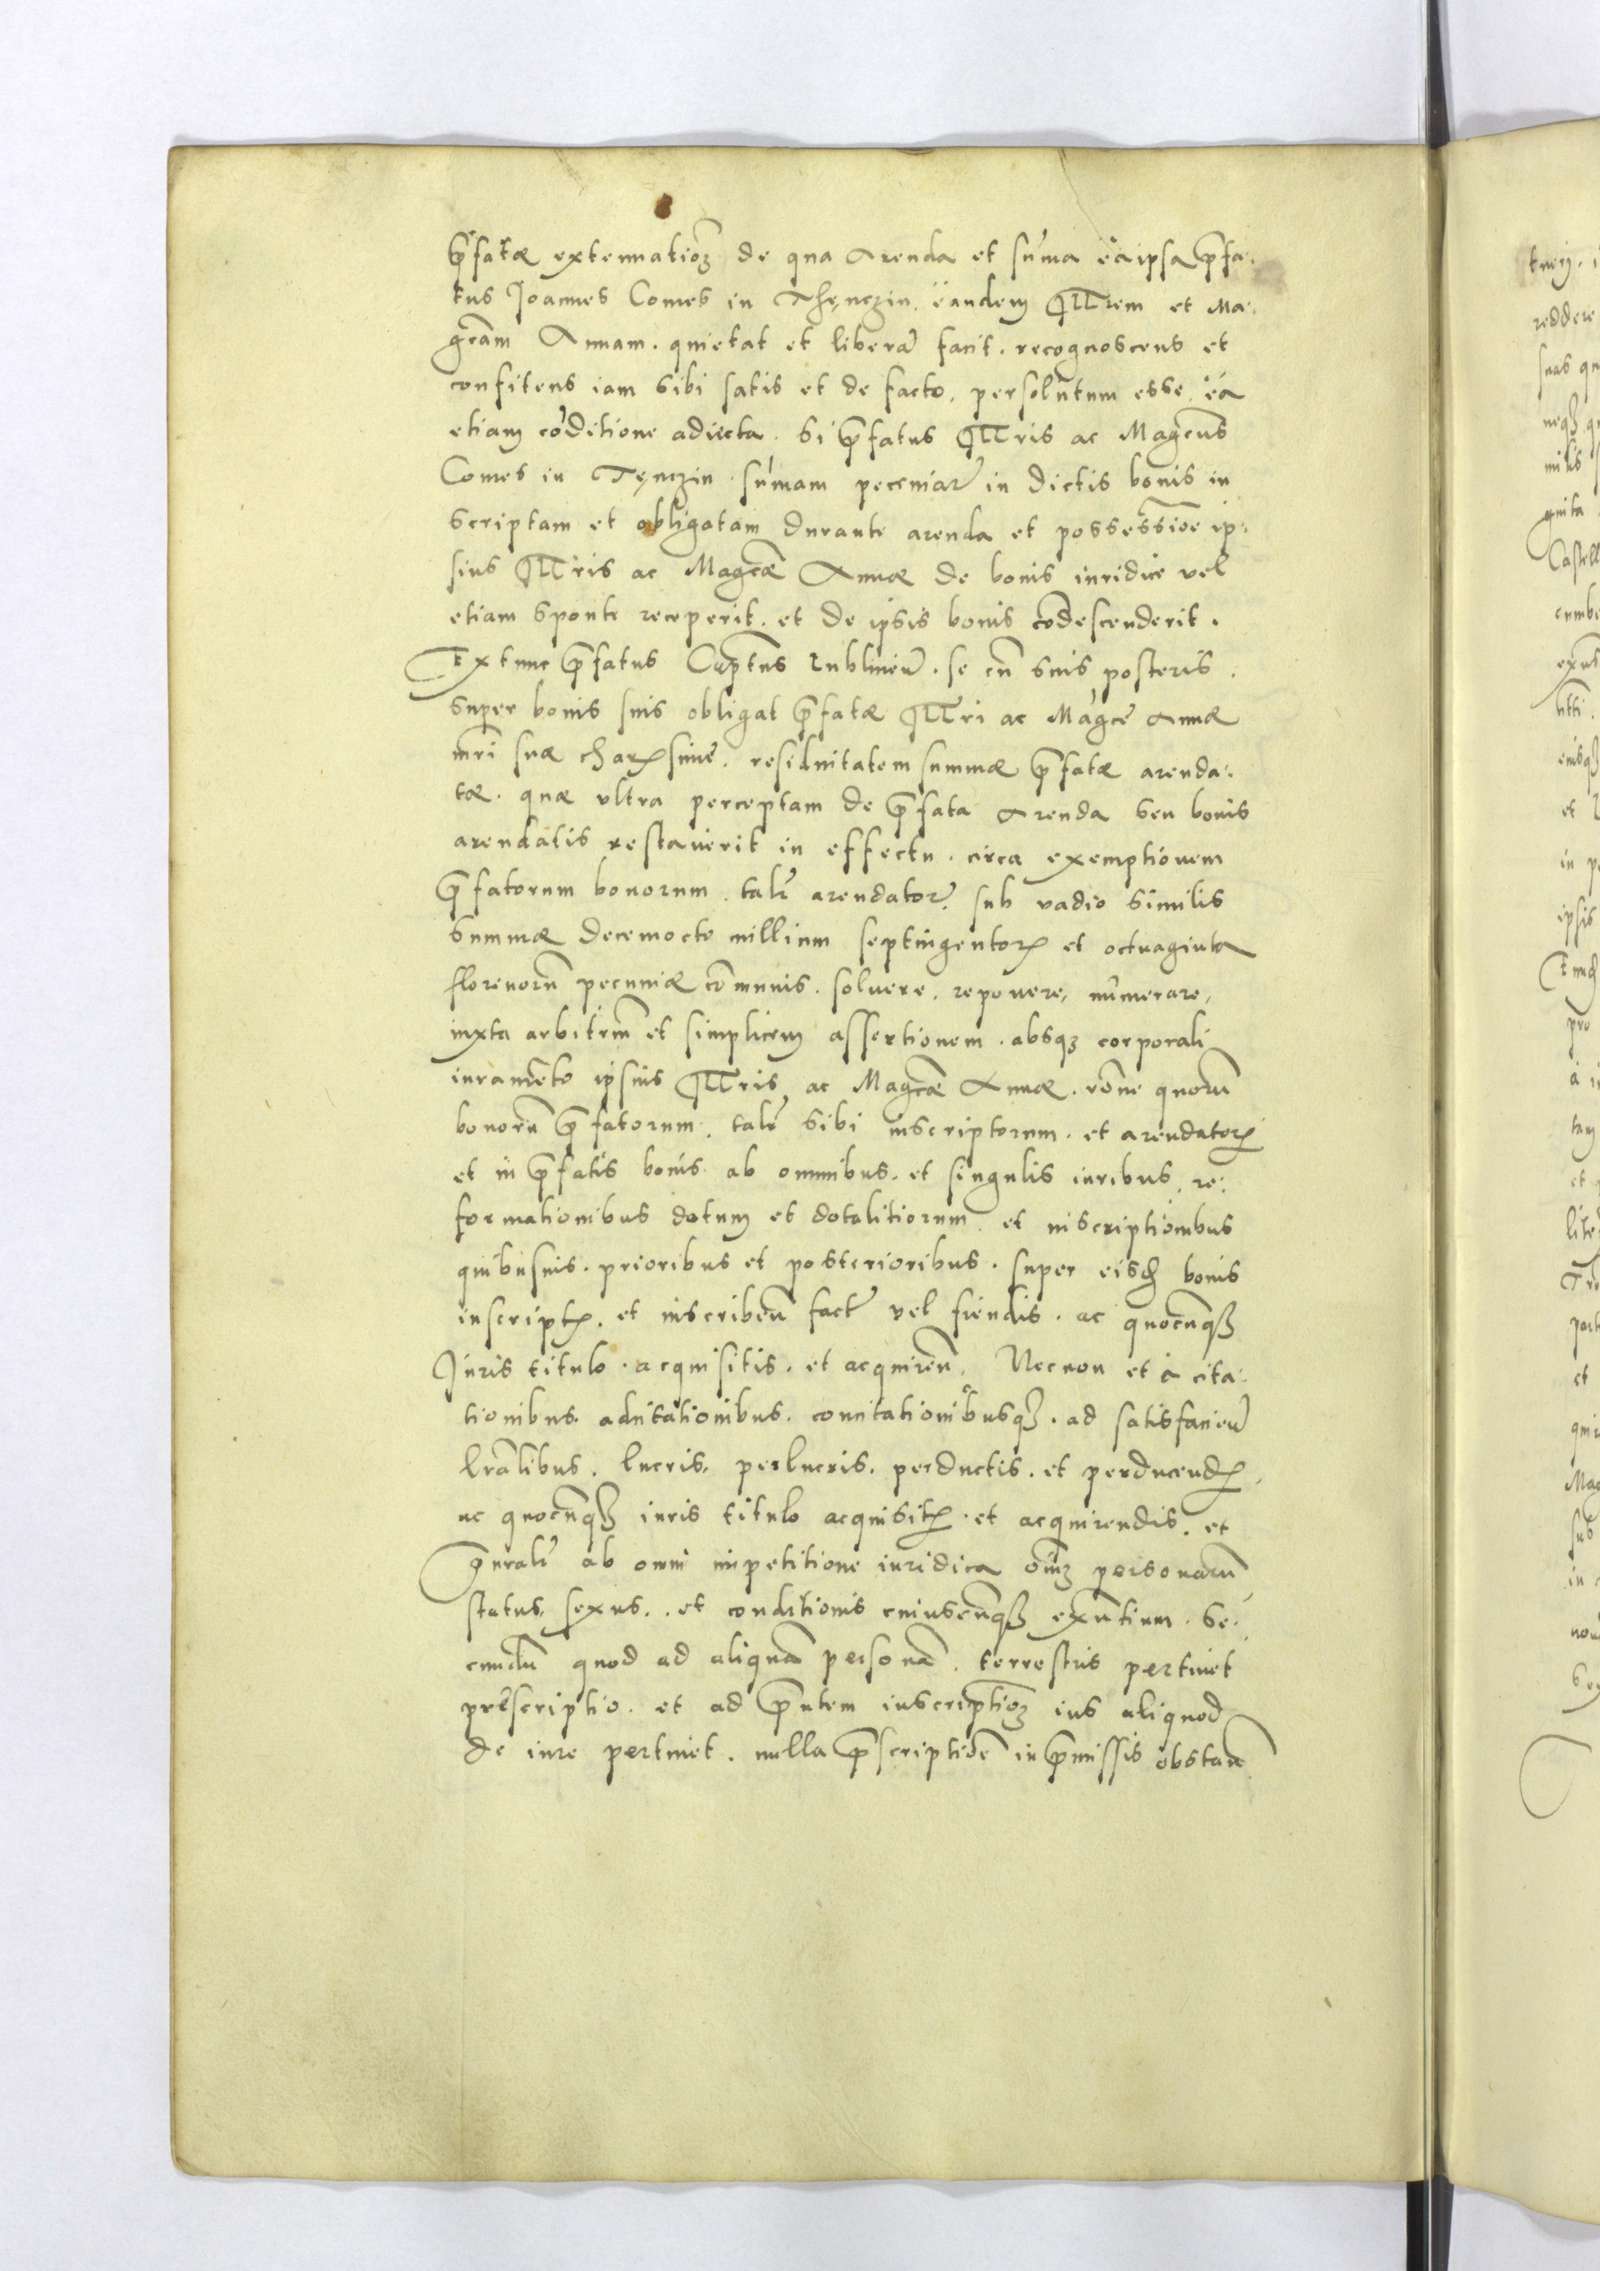 p̄fatæ extenuatioꝫ de qua Arenda et sum̄a ea ipsa p̄fa-
tus Joannes Comes in Thęnczin. eandem Illrem et Ma-
gcam Annam. quietat et liberā facit. recognoscens et
confitens iam sibi satis et de facto. persolutum esse. ea
etiam cōditione adiecta. Si p̄fatus Illris ac Magcus
Comes in Tęnczin sum̄am pecuniar̄ in dictis bonis in
scriptam et obligatam durante arenda et possessiōe ip-
sius Illris ac Magcæ Annæ de bonis iuridice vel
etiam sponte receperit. et de ipsis bonis cōdescenderit.
Extunc p̄fatus Capt̄us Lublineñ. se cū suis posteris.
super bonis suis obligat p̄fatæ Illri ac Magcę Annæ
mri suæ charꝭsimę. residuitatem summæ p̄fatæ arenda-
tæ. quæ ultra perceptam de p̄fata Arenda seu bonis
arendatis restaverit in effectu. circa exemptionem
p̄fatorum bonorum. talr̄ arendator̄. sub vadio similis
summæ decemocto millium septingentorꝭ et octuaginta
florenorū pecuniæ cōmunis. solvere. reponere, numerare,
iuxta arbitrm̄ et simplicem assertionem. absqꝫ corporali
iuramēto ipsius Illris ac Magcæ Annæ. rōne quorū
bonorū p̄fatorum. talr̄ sibi inscriptorum. et arendatorꝭ
et in p̄fatis bonis ab omnibus. et singulis iuribus. re-
formationibus dotum et dotalitiorum et inscriptionibus
quibusuis. prioribus et posterioribus. super eisdꝫ bonis
inscriptꝭ. et inscribeñ fact̄ vel fiendis. ac quocūqꝫ
Juris titulo. acquisitis. et acquireñ. Necnon et a cita-
tionibus. adcitationibus. concitationibusqꝫ. ad satisfacieñ
l̄ralibus. lucris, perlucris. perductis. et perducendꝭ
ac quocūqꝫ iuris titulo acquisitꝭ. et acquirendis. et
gn̄ralr̄ ab omni impetitione iuridica oīuꝫ personarū
status, sexus. et conditionis cuiuscūqꝫ exn̄tium. Se-
cundū quod ad aliquā personā. terrestris pertinet
prescriptio. et ad p̄ntem inscriptioꝫ ius aliquod
de iure pertinet. nulla p̄scriptiōe in p̄missis obstañ